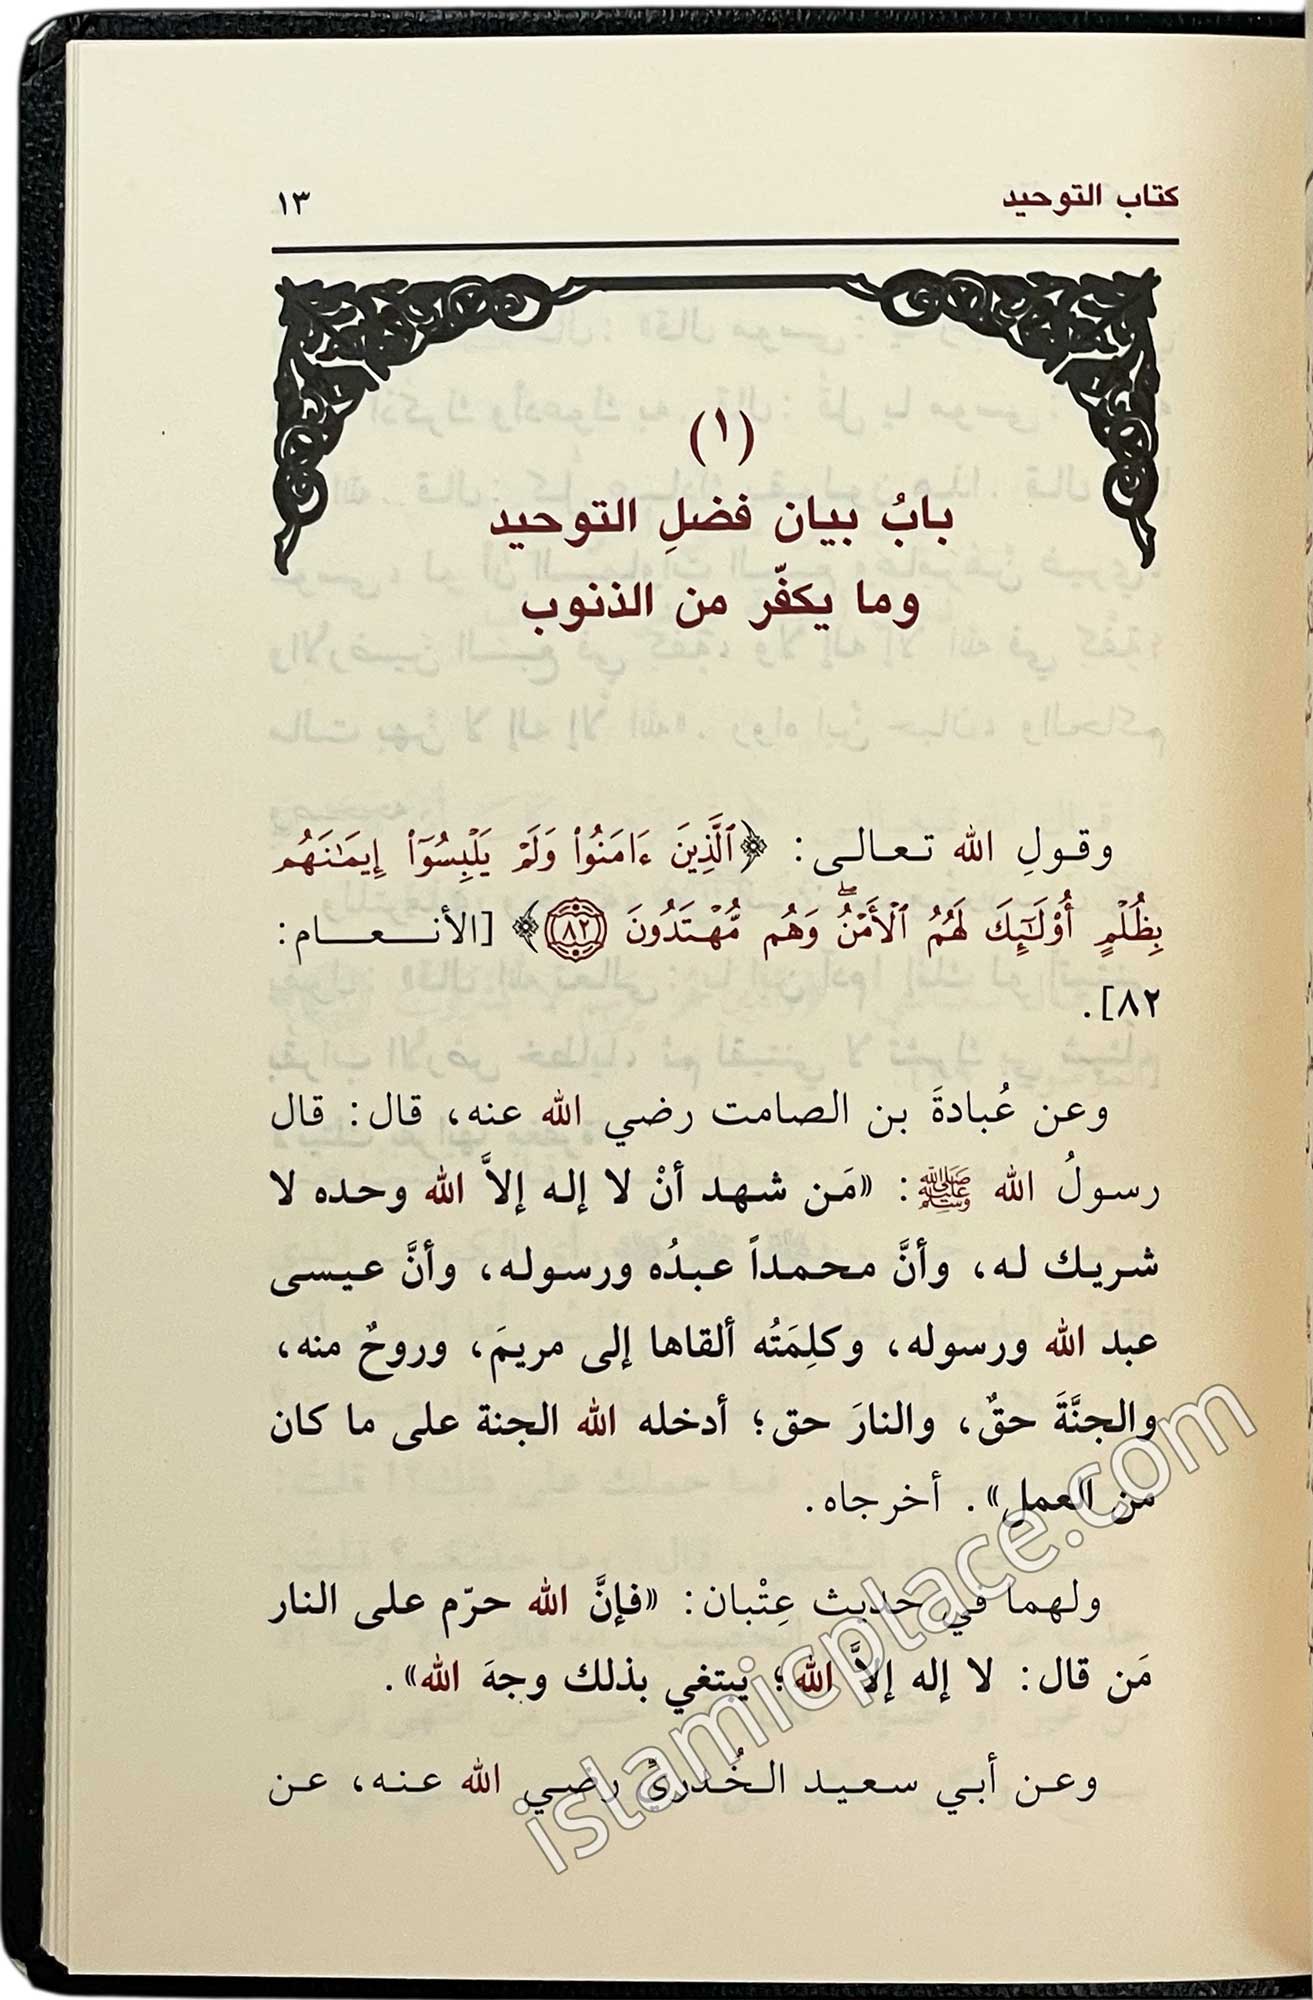 كتاب التوحيد
١٣
(١)
بابُ بيان فضلِ التوحيد
وما يكفّر من الذنوب
وقولِ الله تعالى: ﴿ٱلَّذِينَ ءَامَنُوا۟ وَلَمْ يَلْبِسُوٓا۟ إِيمَـٰنَهُم
بِظُلْمٍ أُو۟لَـٰٓئِكَ لَهُمُ ٱلْأَمْنُۖ وَهُم مُّهْتَدُونَ ٨٢﴾ [الأنعام:
٨٢].
وعن عُبادةَ بن الصامت رضي الله عنه، قال: قال
رسولُ الله ﷺ: «مَن شهد أنْ لا إله إلاَّ الله وحده لا
شريك له، وأنَّ محمداً عبدُه ورسوله، وأنَّ عيسى
عبد الله ورسوله، وكلِمَتُه ألقاها إلى مريمَ، وروحٌ منه،
والجنَّةَ حقٌ، والنارَ حق؛ أدخله الله الجنة على ما كان
من العمل». أخرجاه.
ولهما في حديث عِتْبان: «فإنَّ الله حرّم على النار
مَن قال: لا إله إلاَّ الله؛ يبتغي بذلك وجهَ الله».
وعن أبي سعيد الخُدريِّ رضي الله عنه، عن
islamicplace.com